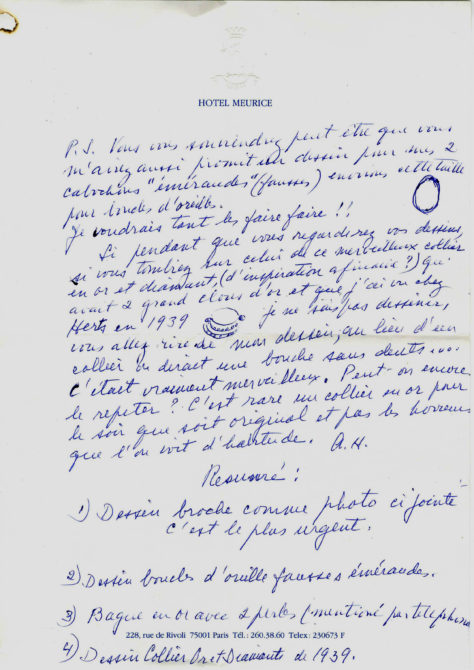 HOTEL MEURICE
P.S. Vous vous souviendrez peut être que vous
m'aviez aussi promit un dessin pour mes 2
cabochons "émeraudes" (fausses) environs cette taille
pour boucles d'oreilles.
Je voudrais tant les faire faire !!
Si pendant que vous regarderez vos dessins,
si vous tombiez sur celui de ce merveilleux collier
en or et diamant, (d'inspiration africaine ?) qui
avait 2 grand clous d'or et que j'ai vu chez
Herts en 1939 je ne sais pas dessiner,
vous allez rire de mon dessin, au lieu d'un
collier on dirait une bouche sans dents....
C'était vraiment merveilleux. Peut-on encore
le repeter ? C'est rare un collier en or pour
le soir que soit original et pas les horreurs
que l'on voit d'habitude. A.H.
Resumé :
1) Dessin broche comme photo ci jointe
c'est le plus urgent.
2) Dessin boucles d'oreille fausses émeraudes.
3) Bague en or avec 2 perles (mentioné par telephone
228, rue de Rivoli 75001 Paris Tél. : 260.38.60 Telex : 230673 F
4) Dessin Collier Or et Diamants de 1939.